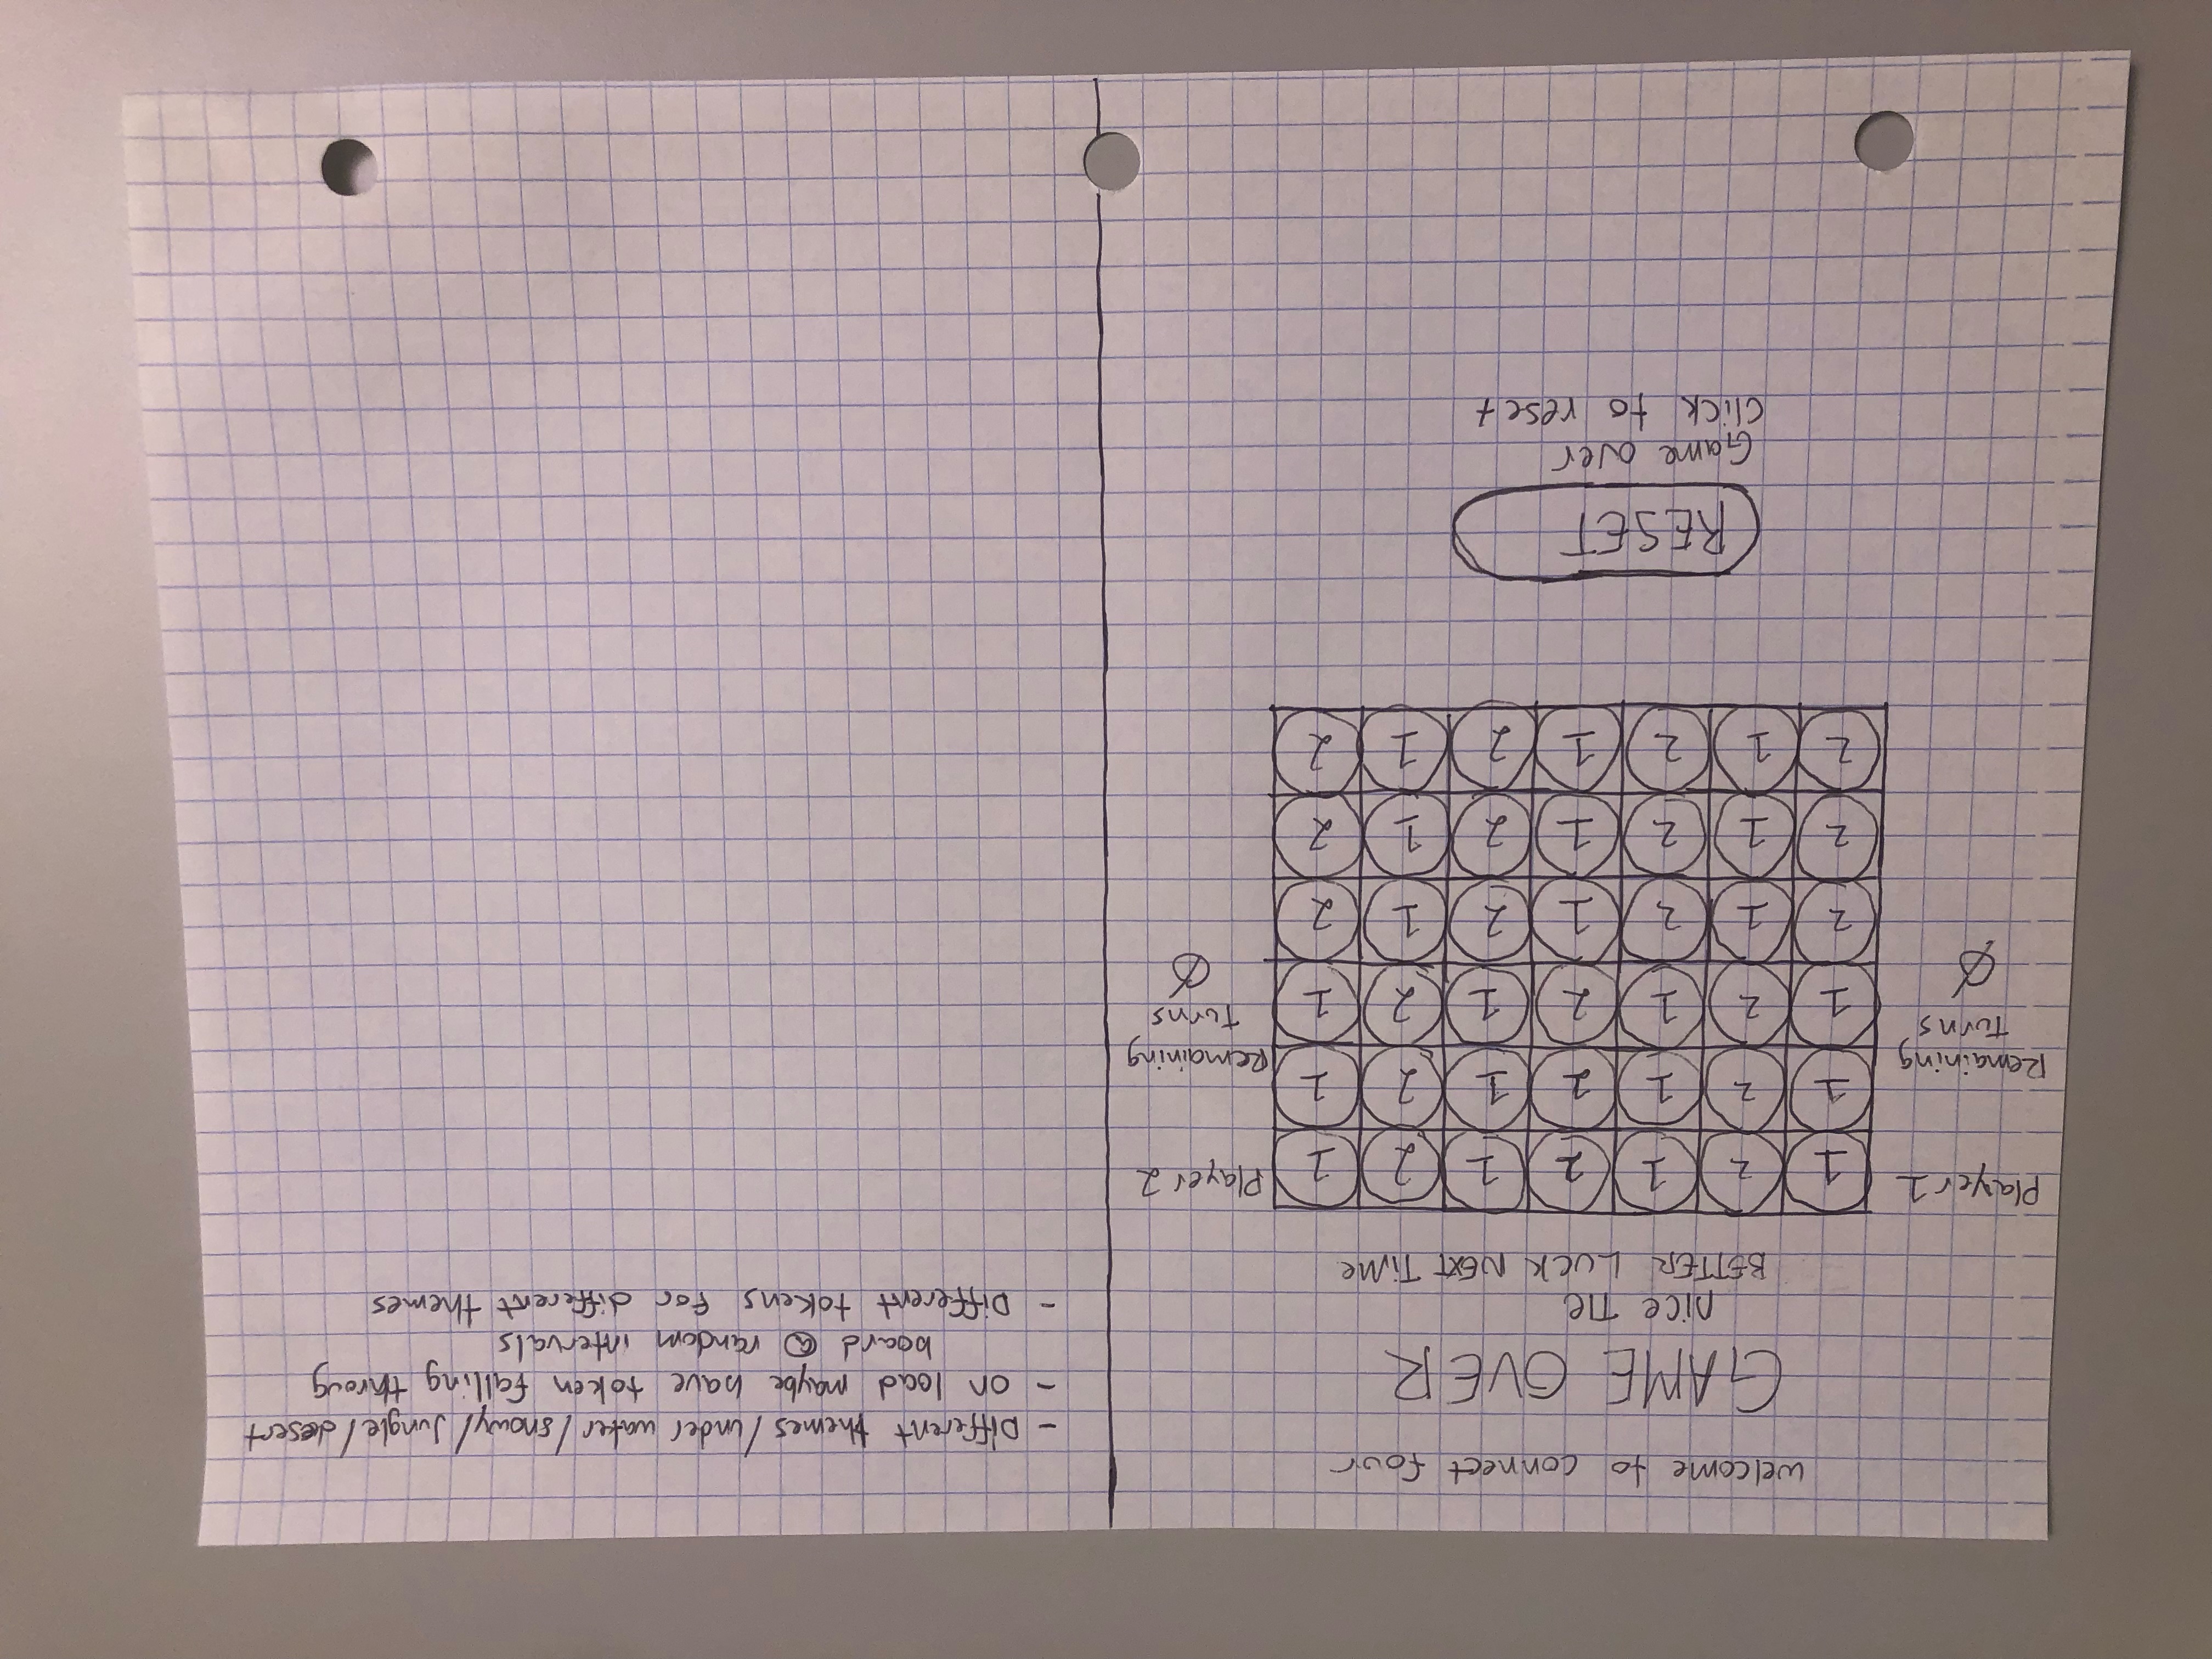 welcome to connect four
GAME OVER
NICE TIE
BETTER LUCK NEXT TIME
Player 1
Player 2
Remaining
Turns
Ø
Remaining
Turns
Ø
1 2 1 2 1 2 1
1 2 1 2 1 2 1
1 2 1 2 1 2 1
2 1 2 1 2 1 2
2 1 2 1 2 1 2
2 1 2 1 2 1 2
RESET
Game over
Click to reset
- Different themes/under water/snowy/Jungle/desert
- on load maybe have token falling throug
board @ random intervals
- Different tokens for different themes